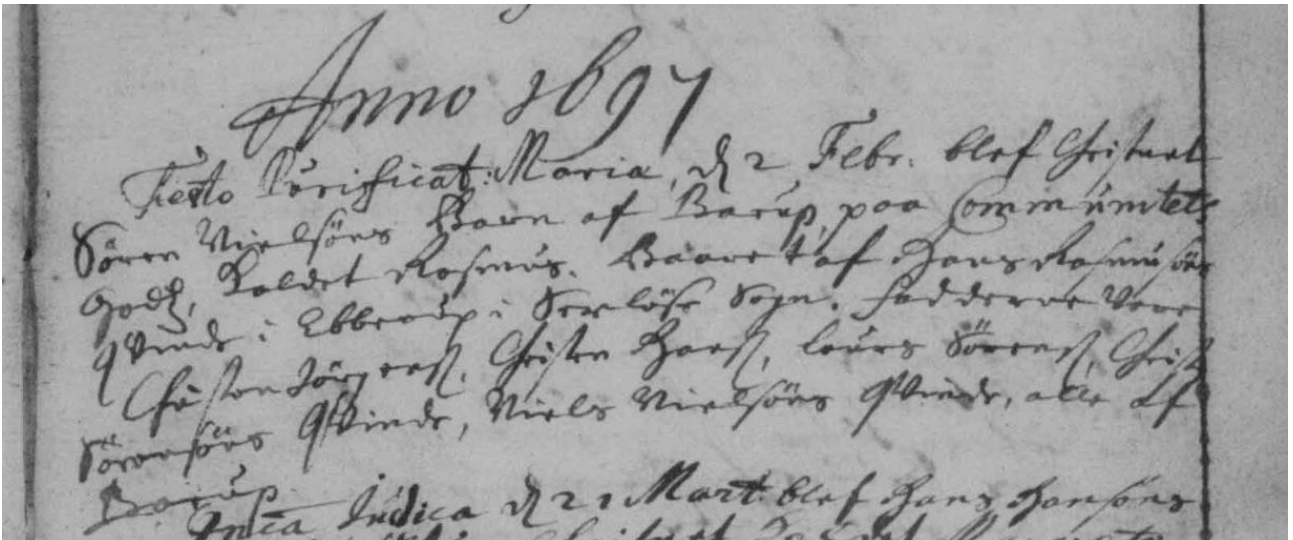 Anno 1697
Festo Purificat: Maria, d 2 Febr. blef Christnet
Sören Nielsöns Barn af Barup, paa Communitets
Godtz, Kaldet Rasmus. Baaret af Hans Rasmusöns
Qvinde i Ebberup i Serlöse Sogn. Fadderne Vare
Christen Jörgenss. Christen Hanss, Laurs Sörenss, Christ
Sörensöns Qvinde, Niels Nielsöns Qvinde, alle af
Barup
Dnica Judica d 21 Mart: blef Hans Hansöns
Christnet Kaldet Margrete